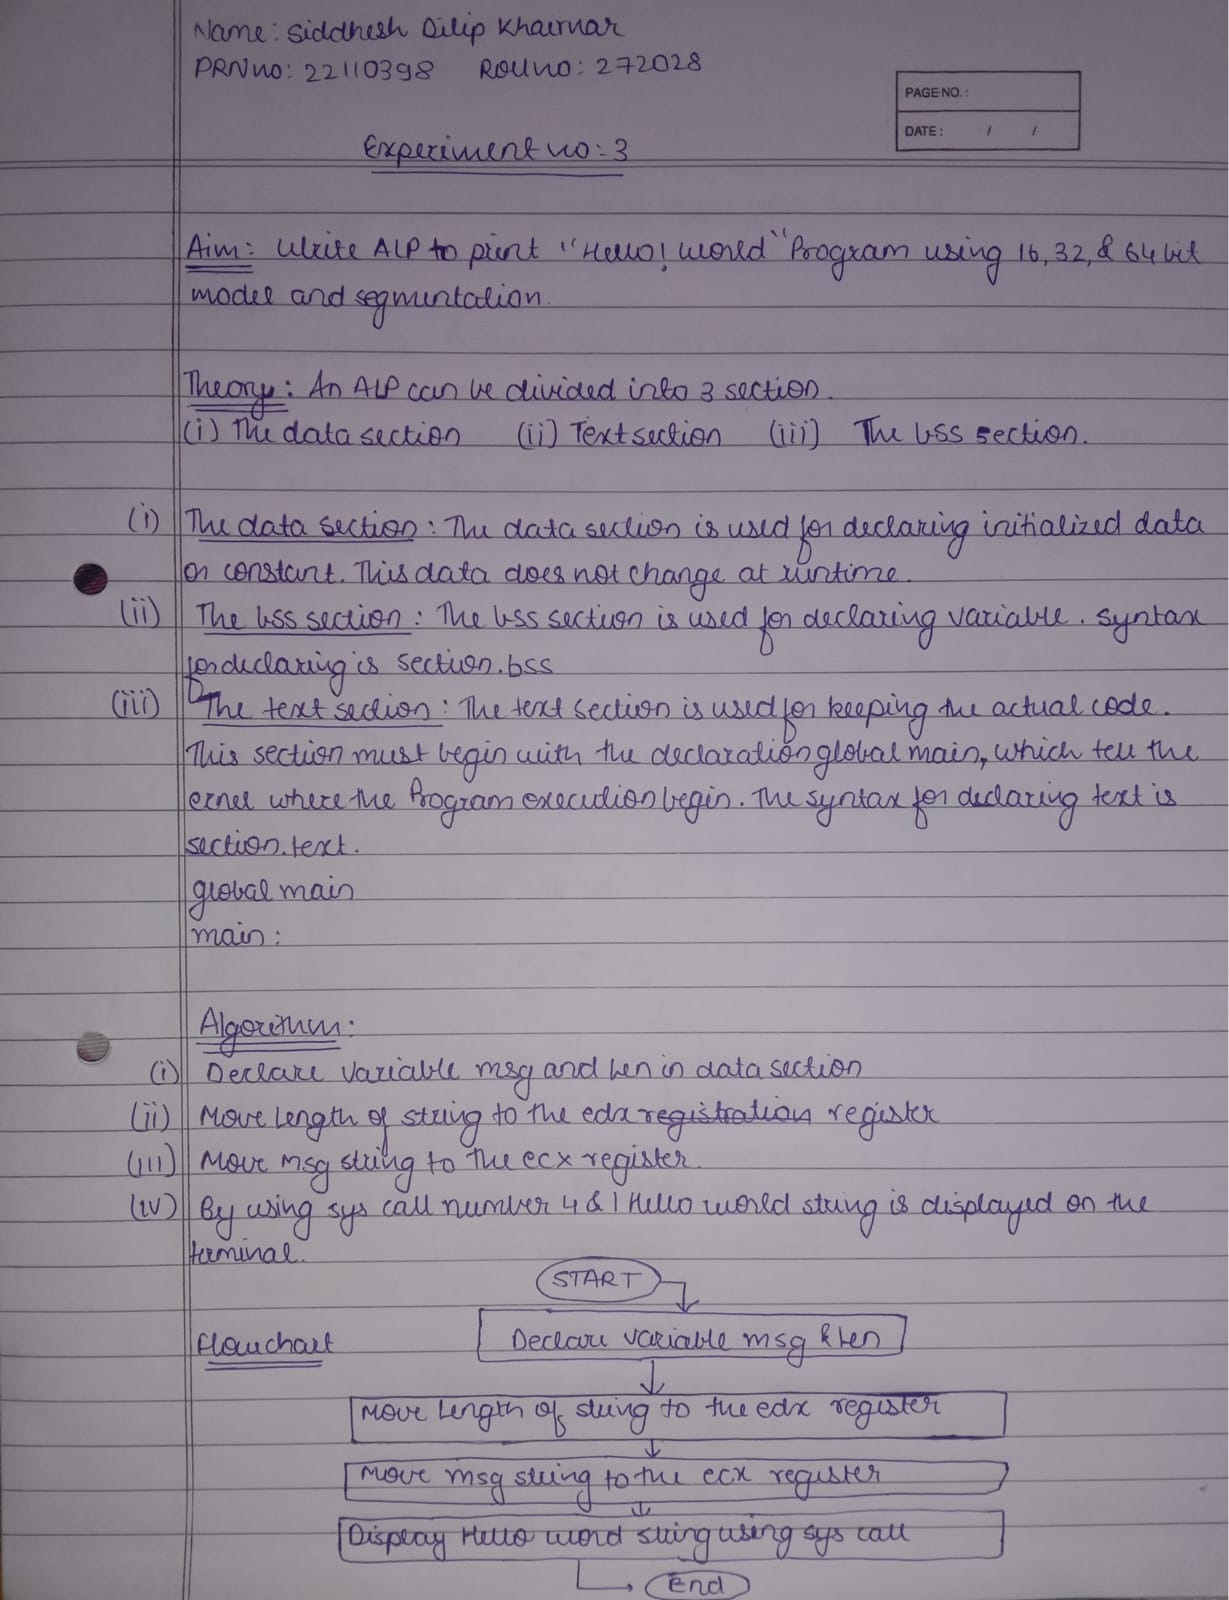 Name: Siddhesh Dilip Khairnar
PRN no: 22110398 Roll no: 272028
PAGE NO.:
DATE: / /
Experiment no:- 3
Aim: Write ALP to print "Hello! World" Program using 16, 32, & 64 bit
model and segmentation.
Theory: An ALP can be divided into 3 section.
(i) The data section (ii) Text section (iii) The bss section.
(i) The data section: The data section is used for declaring initialized data
or constant. This data does not change at runtime.
(ii) The bss section: The bss section is used for declaring variable. syntax
for declaring is section.bss
(iii) The text section: The text section is used for keeping the actual code.
This section must begin with the declaration global main, which tell the
ernel where the Program execution begin. The syntax for declaring text is
section.text.
global main
main:
Algorithm:
(i) Declare variable msg and len in data section
(ii) Move length of string to the edx registration register
(iii) Move msg string to the ecx register.
(iv) By using sys call number 4 & 1 Hello world string is displayed on the
terminal.
START
Flowchart
Declare variable msg & len
Move Length of string to the edx register
Move msg string to the ecx register
Display Hello word string using sys call
End